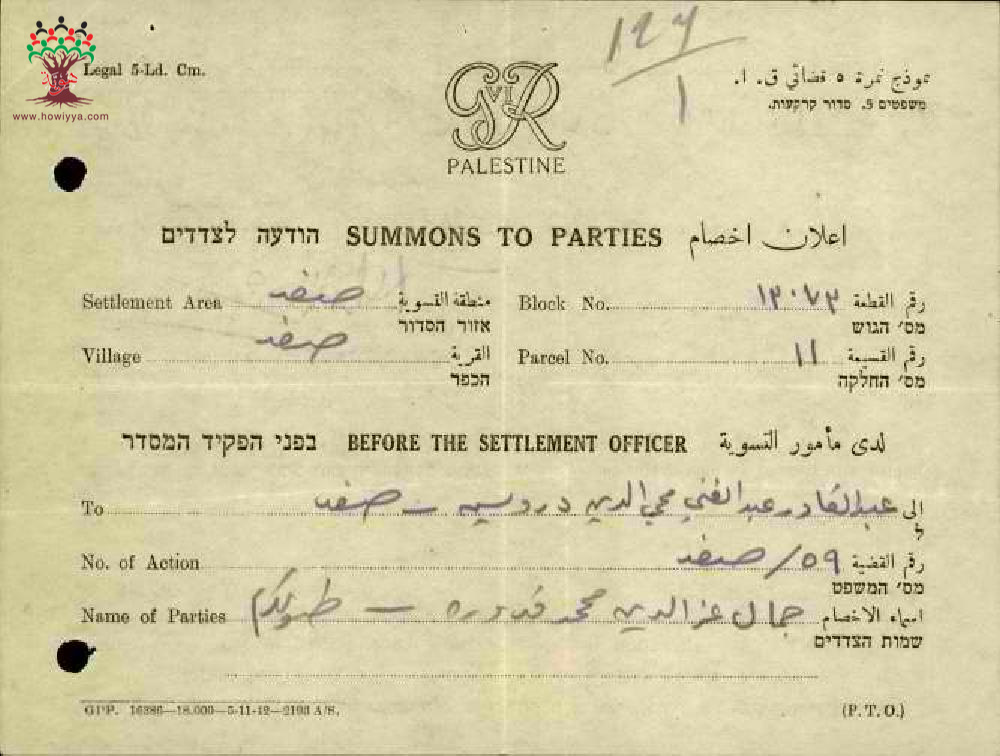 ١٢٩
١
www.howiyya.com
Legal 5-Ld. Cm.
نموذج نمرة ٥ قضائي ق. ا.
משפטים 5. סדור קרקעות.
G VI R
PALESTINE
הודעה לצדדים SUMMONS TO PARTIES اعلان اخصام
Settlement Area صفد منطقة التسوية
אזור הסדור
Block No. ١٣٠٧٣ رقم القطعة
מס' הגוש
Village صفد القرية
הכפר
Parcel No. ١١ رقم القسيمة
מס' החלקה
בפני הפקיד המסדר BEFORE THE SETTLEMENT OFFICER لدى مأمور التسوية
To عبد القادر عبد الغني محي الدين درويش – صفد الى
ל
No. of Action ٥٩/صفد رقم القضية
מס' המשפט
Name of Parties جمال عز الدين محمد قدوره – طولكرم اسماء الاخصام
שמות הצדדים
GPP. 16386—18.000—5-11-42—2193 A/S.
(P.T.O.)